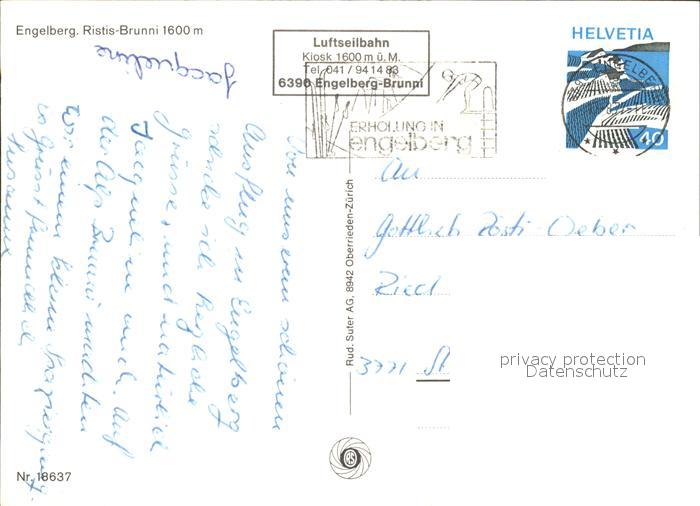 Engelberg. Ristis-Brunni 1600 m
Jacqueline
Luftseilbahn
Kiosk 1600 m ü. M.
Tel. 041 / 94 14 83
6390 Engelberg-Brunni
ERHOLUNG IN
engelberg
HELVETIA
ENGELBERG
40
Von unserem schönen
Ausflug in Engelberg
ich herzliche
Grüsse, und natürlich
Jacquelin auch. Auf
der Alp Brunni
Wir einen kleinen Spaziergang.
Grüsst freundlich
Susanne
Rud. Suter AG, 8942 Oberrieden-Zürich
An
Gottlieb Zösti-Weber
Ried
3771 St
privacy protection
Datenschutz
Nr. 18637